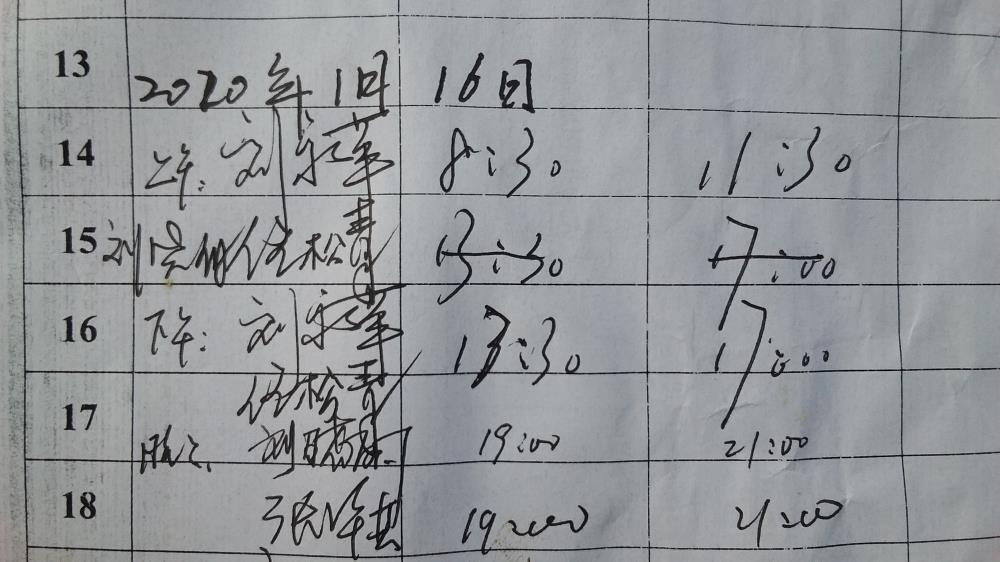 13 2020年1月 16日
14 上午: 刘 8:30 11:30
15 刘 任松青 13:30 17:00
16 下午: 刘 13:30 17:00
任松青
17 晚上 刘 19:00 21:00
18 张 19:00 21:00